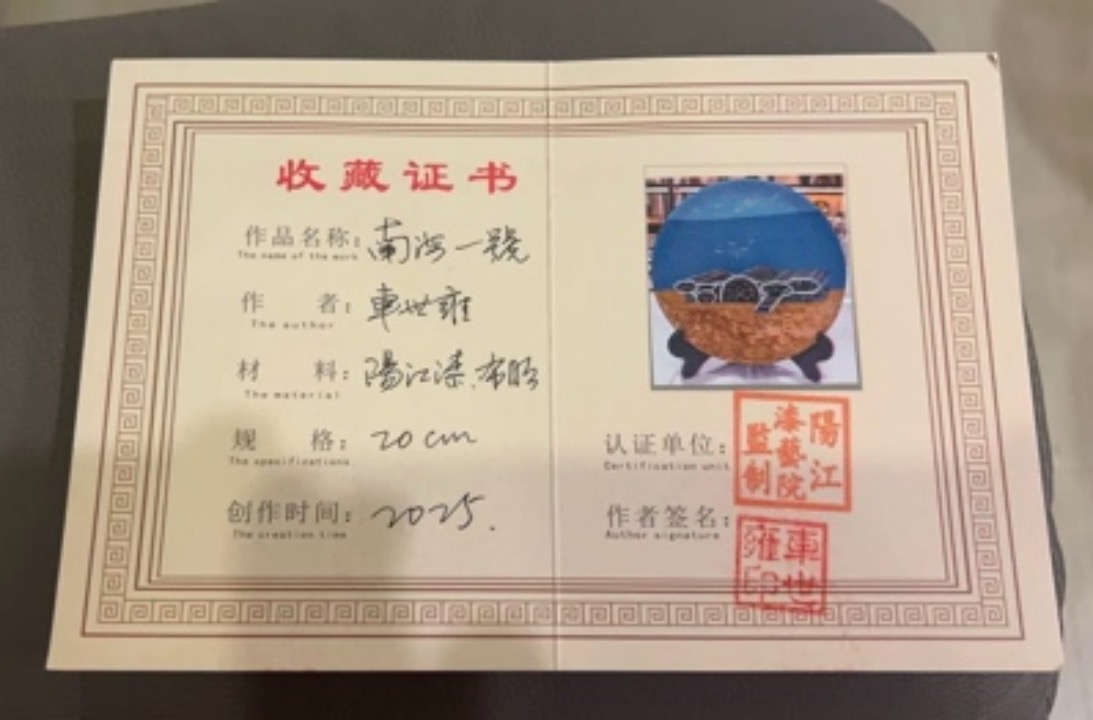 收藏证书
作品名称：南海一號
The name of the work
作者：車世雍
The author
材料：陽江漆、布胎
The material
规格：20cm
The specifications
创作时间：2025.
The creation time
认证单位：
Certification unit
陽江
漆藝院
監制
作者签名：
Author signature
車世
雍印